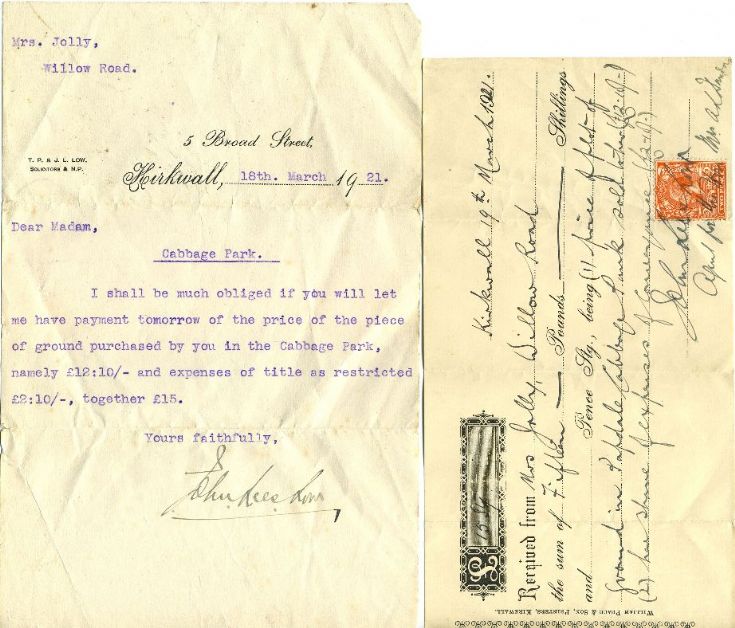 Mrs. Jolly,
Willow Road.
5 Broad Street,
T. P. & J. L. LOW,
SOLICITORS & N.P.
Kirkwall, 18th. March 1921.
Dear Madam,
Cabbage Park.
I shall be much obliged if you will let
me have payment tomorrow of the price of the piece
of ground purchased by you in the Cabbage Park,
namely £12:10/- and expenses of title as restricted
£2:10/-, together £15.
Yours faithfully,
John Lees Low
Kirkwall 19th March 1921.
Received from Mrs Jolly, Willow Road
the sum of Fifteen Pounds Shillings
and Pence Stg., being (1) price of plot of
ground in Papdale Cabbage Park sold to her (£12.10/-)
(2) her share of expenses of conveyance (£2.10/-)
£ 15
John Lees Low
WILLIAM PEACE & SON, PRINTERS, KIRKWALL.